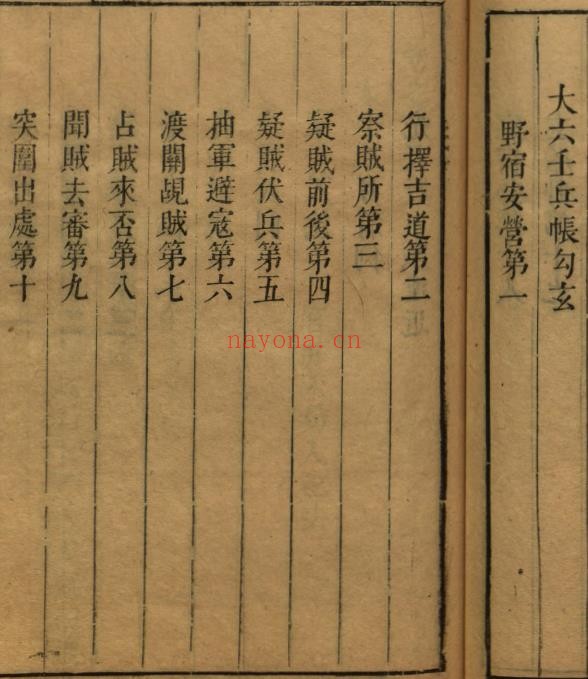 大六壬兵帳勾玄
野宿安營第一
行擇吉道第二
察賊所第三
疑賊前後第四
疑賊伏兵第五
抽軍避寇第六
渡關覘賊第七
占賊來否第八
聞賊去審第九
突圍出處第十
nayona.cn